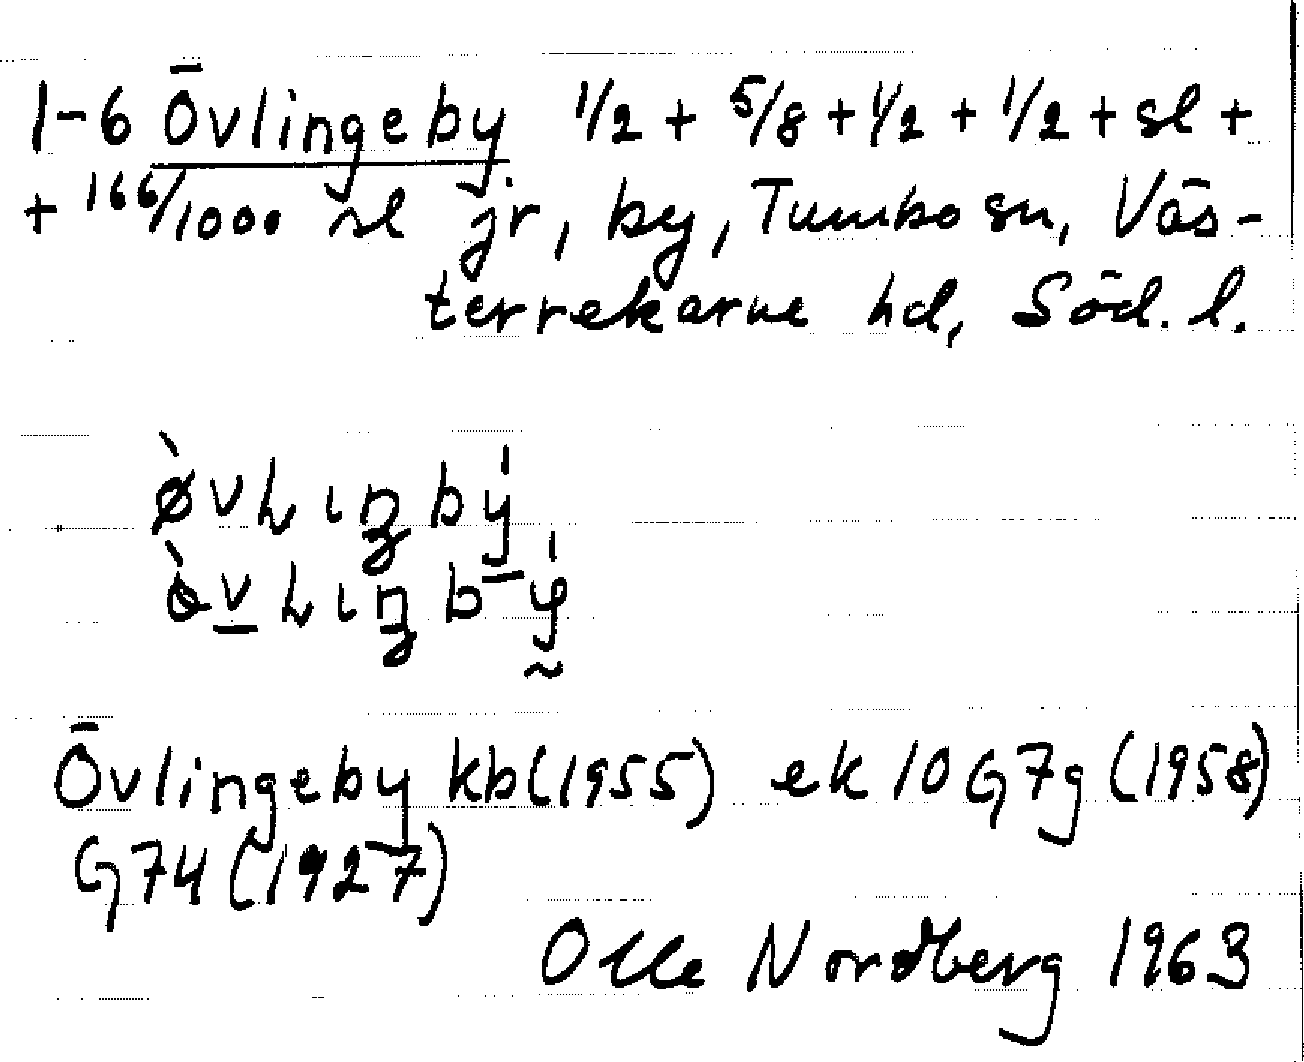 1-6 Övlingeby 1/2 + 5/8 + 1/2 + 1/2 + sl +
+ 166/1000 sl jr, by, Tumbo sn, Väs-
terrekarne hd, Söd. l.
Övlingeby kb (1955) ek 10 G7g (1958)
G74 (1927)
Olle Nordberg 1963